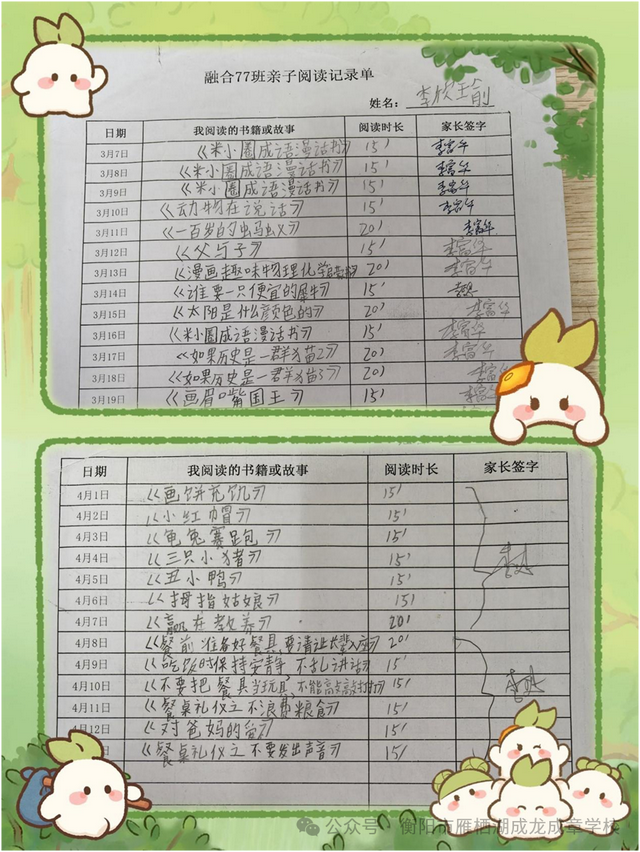 融合77班亲子阅读记录单
姓名：
日期 我阅读的书籍或故事 阅读时长 家长签字
3月7日 《米小圈成语漫话书》 15' 李富华
3月8日 《米小圈成语漫话书》 15' 李富华
3月9日 《米小圈成语漫话书》 15' 李富华
3月10日 《动物在说话》 15' 李富华
3月11日 《一百岁的虫马虫义》 20' 李富华
3月12日 《父与子》 15' 李富华
3月13日 《漫画趣味物理化学 20' 李富华
3月14日 《谁要一只便宜的犀牛》 15'
3月15日 《太阳是什么颜色的》 20' 李富华
3月16日 《米小圈成语漫话书》 15' 李富华
3月17日 《如果历史是一群猫2》 20' 李富华
3月18日 《如果历史是一群猫3》 20' 李富华
3月19日 《画眉嘴国王》 15' 李富华
日期 我阅读的书籍或故事 阅读时长 家长签字
4月1日 《画饼充饥》 15'
4月2日 《小红帽》 15'
4月3日 《龟兔赛足包》 15'
4月4日 《三只小猪》 15'
4月5日 《丑小鸭》 15'
4月6日 《拇指姑娘》 15'
4月7日 《赢在教养》 20'
4月8日 《餐前准备好餐具,要请让长辈入座》 20'
4月9日 《吃饭时保持安静 不乱讲话》 15'
4月10日 《不要把餐具当玩具,不能高高敲打打》 15'
4月11日 《餐桌礼仪之不浪费粮食》 15'
4月12日 《对爸妈的爱》 15'
《餐桌礼仪之不要发出声音》 15'
公众号 · 衡阳市雁栖湖成龙成章学校